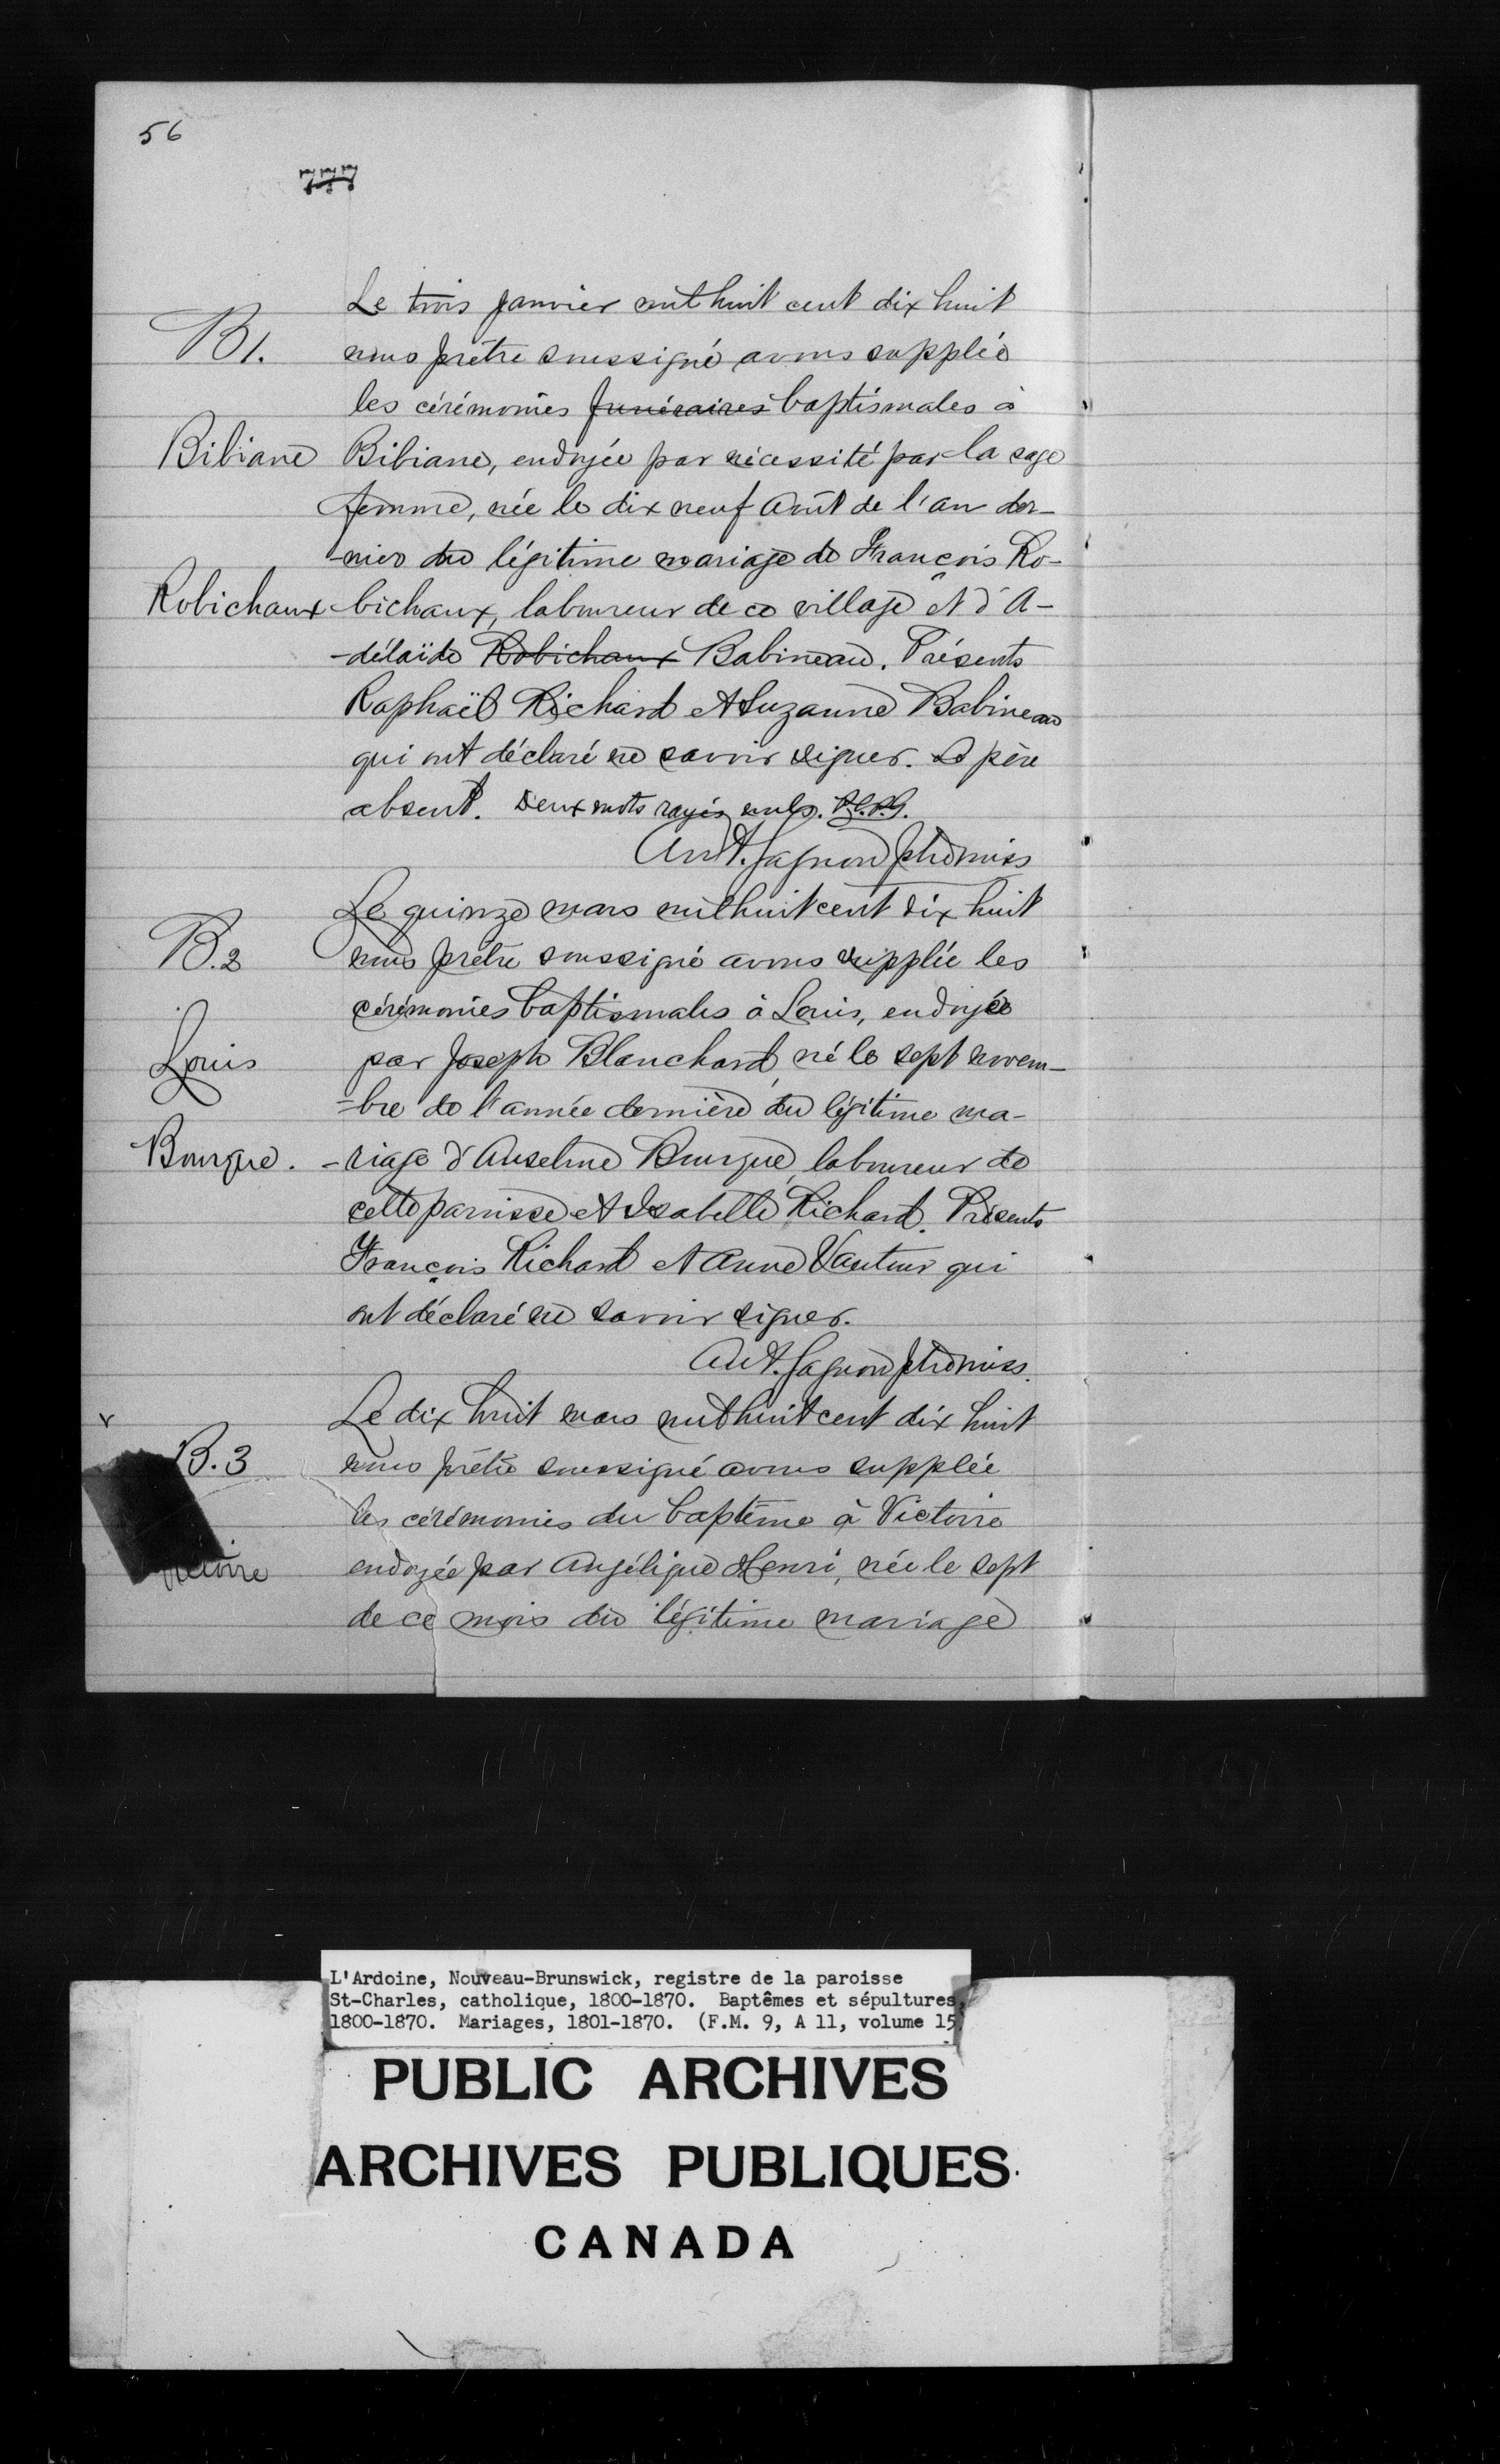 56
Le trois janvier mil huit cent dix huit
B1. nous prêtre soussigné avons supplée
les cérémonies funéraires baptismales à
Bibiane Bibiane, endoyée par nécessité par la sage
femme, née le dix neuf Août de l'an der-
-nier du légitime mariage de François Ro-
Robichaux -bichaux, laboureur de ce village et d'A-
-délaïde Robichaux Babineau. Présents
Raphaël Richard et Suzanne Babineau
qui ont déclaré ne savoir signer. Le père
absent. Deux mots rayés nuls.
Ant. Gagnon ptre miss
Le quinze mars mil huit cent dix huit
B.2 nous prêtre soussigné avons supplée les
cérémonies baptismales à Louis, endoyée
Louis par Joseph Blanchard, né le sept novem-
-bre de l'année dernière du légitime ma-
Bourque. -riage d'Anselme Bourque, laboureur de
cette paroisse et Isabelle Richard. Présents
François Richard et Anne Vautour qui
ont déclaré ne savoir signer.
Ant. Gagnon ptre miss.
Le dix huit mars mil huit cent dix huit
B.3 nous prêtre soussigné avons supplée
les cérémonies du baptême à Victoire
Victoire endoyée par Angélique Henri, née le sept
de ce mois du légitime mariage
L'Ardoine, Nouveau-Brunswick, registre de la paroisse
St-Charles, catholique, 1800-1870. Baptêmes et sépultures,
1800-1870. Mariages, 1801-1870. (F.M. 9, A 11, volume 15)
PUBLIC ARCHIVES
ARCHIVES PUBLIQUES
CANADA